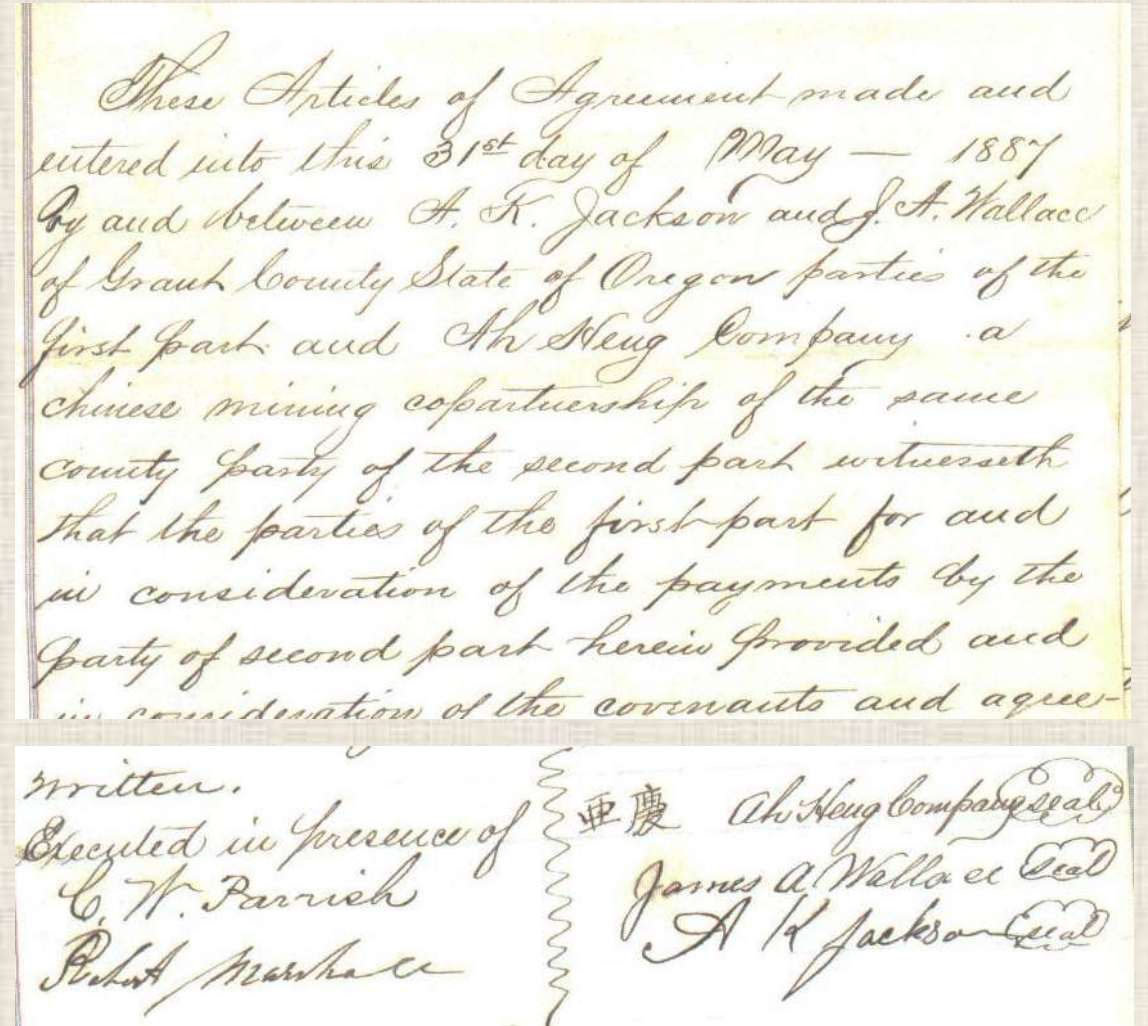 These Articles of Agreement made and
entered into this 31st day of May — 1887
by and between A. K. Jackson and J. A. Wallace
of Grant County State of Oregon parties of the
first part and Ah Heng Company a
chinese mining copartnership of the same
county party of the second part witnesseth
that the parties of the first part for and
in consideration of the payments by the
party of second part herein provided and
in consideration of the covenants and agree-
written.
Executed in presence of
C. W. Parrish
Robert Marshall
亜慶 Ah Heng Company seal
James A Wallace seal
A K Jackson seal